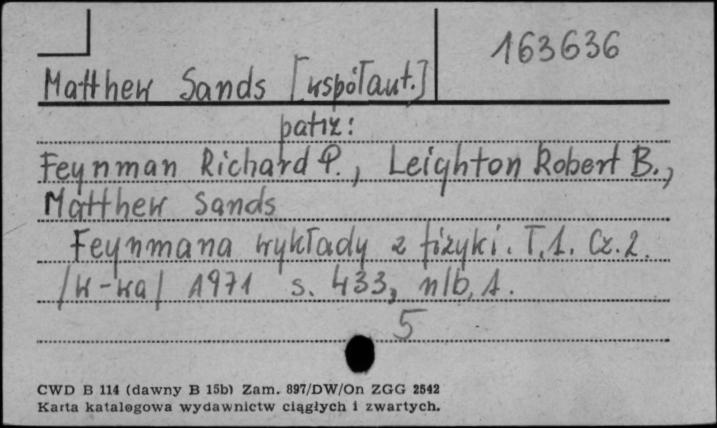 163636
Matthew Sands [współaut.]
patrz:
Feynman Richard P., Leighton Robert B.,
Matthew Sands
Feynmana wykłady z fizyki. T.1. Cz.2.
/W-wa/ 1971 s. 433, nlb, 1.
5
CWD B 114 (dawny B 15b) Zam. 897/DW/On ZGG 2542
Karta katalogowa wydawnictw ciągłych i zwartych.